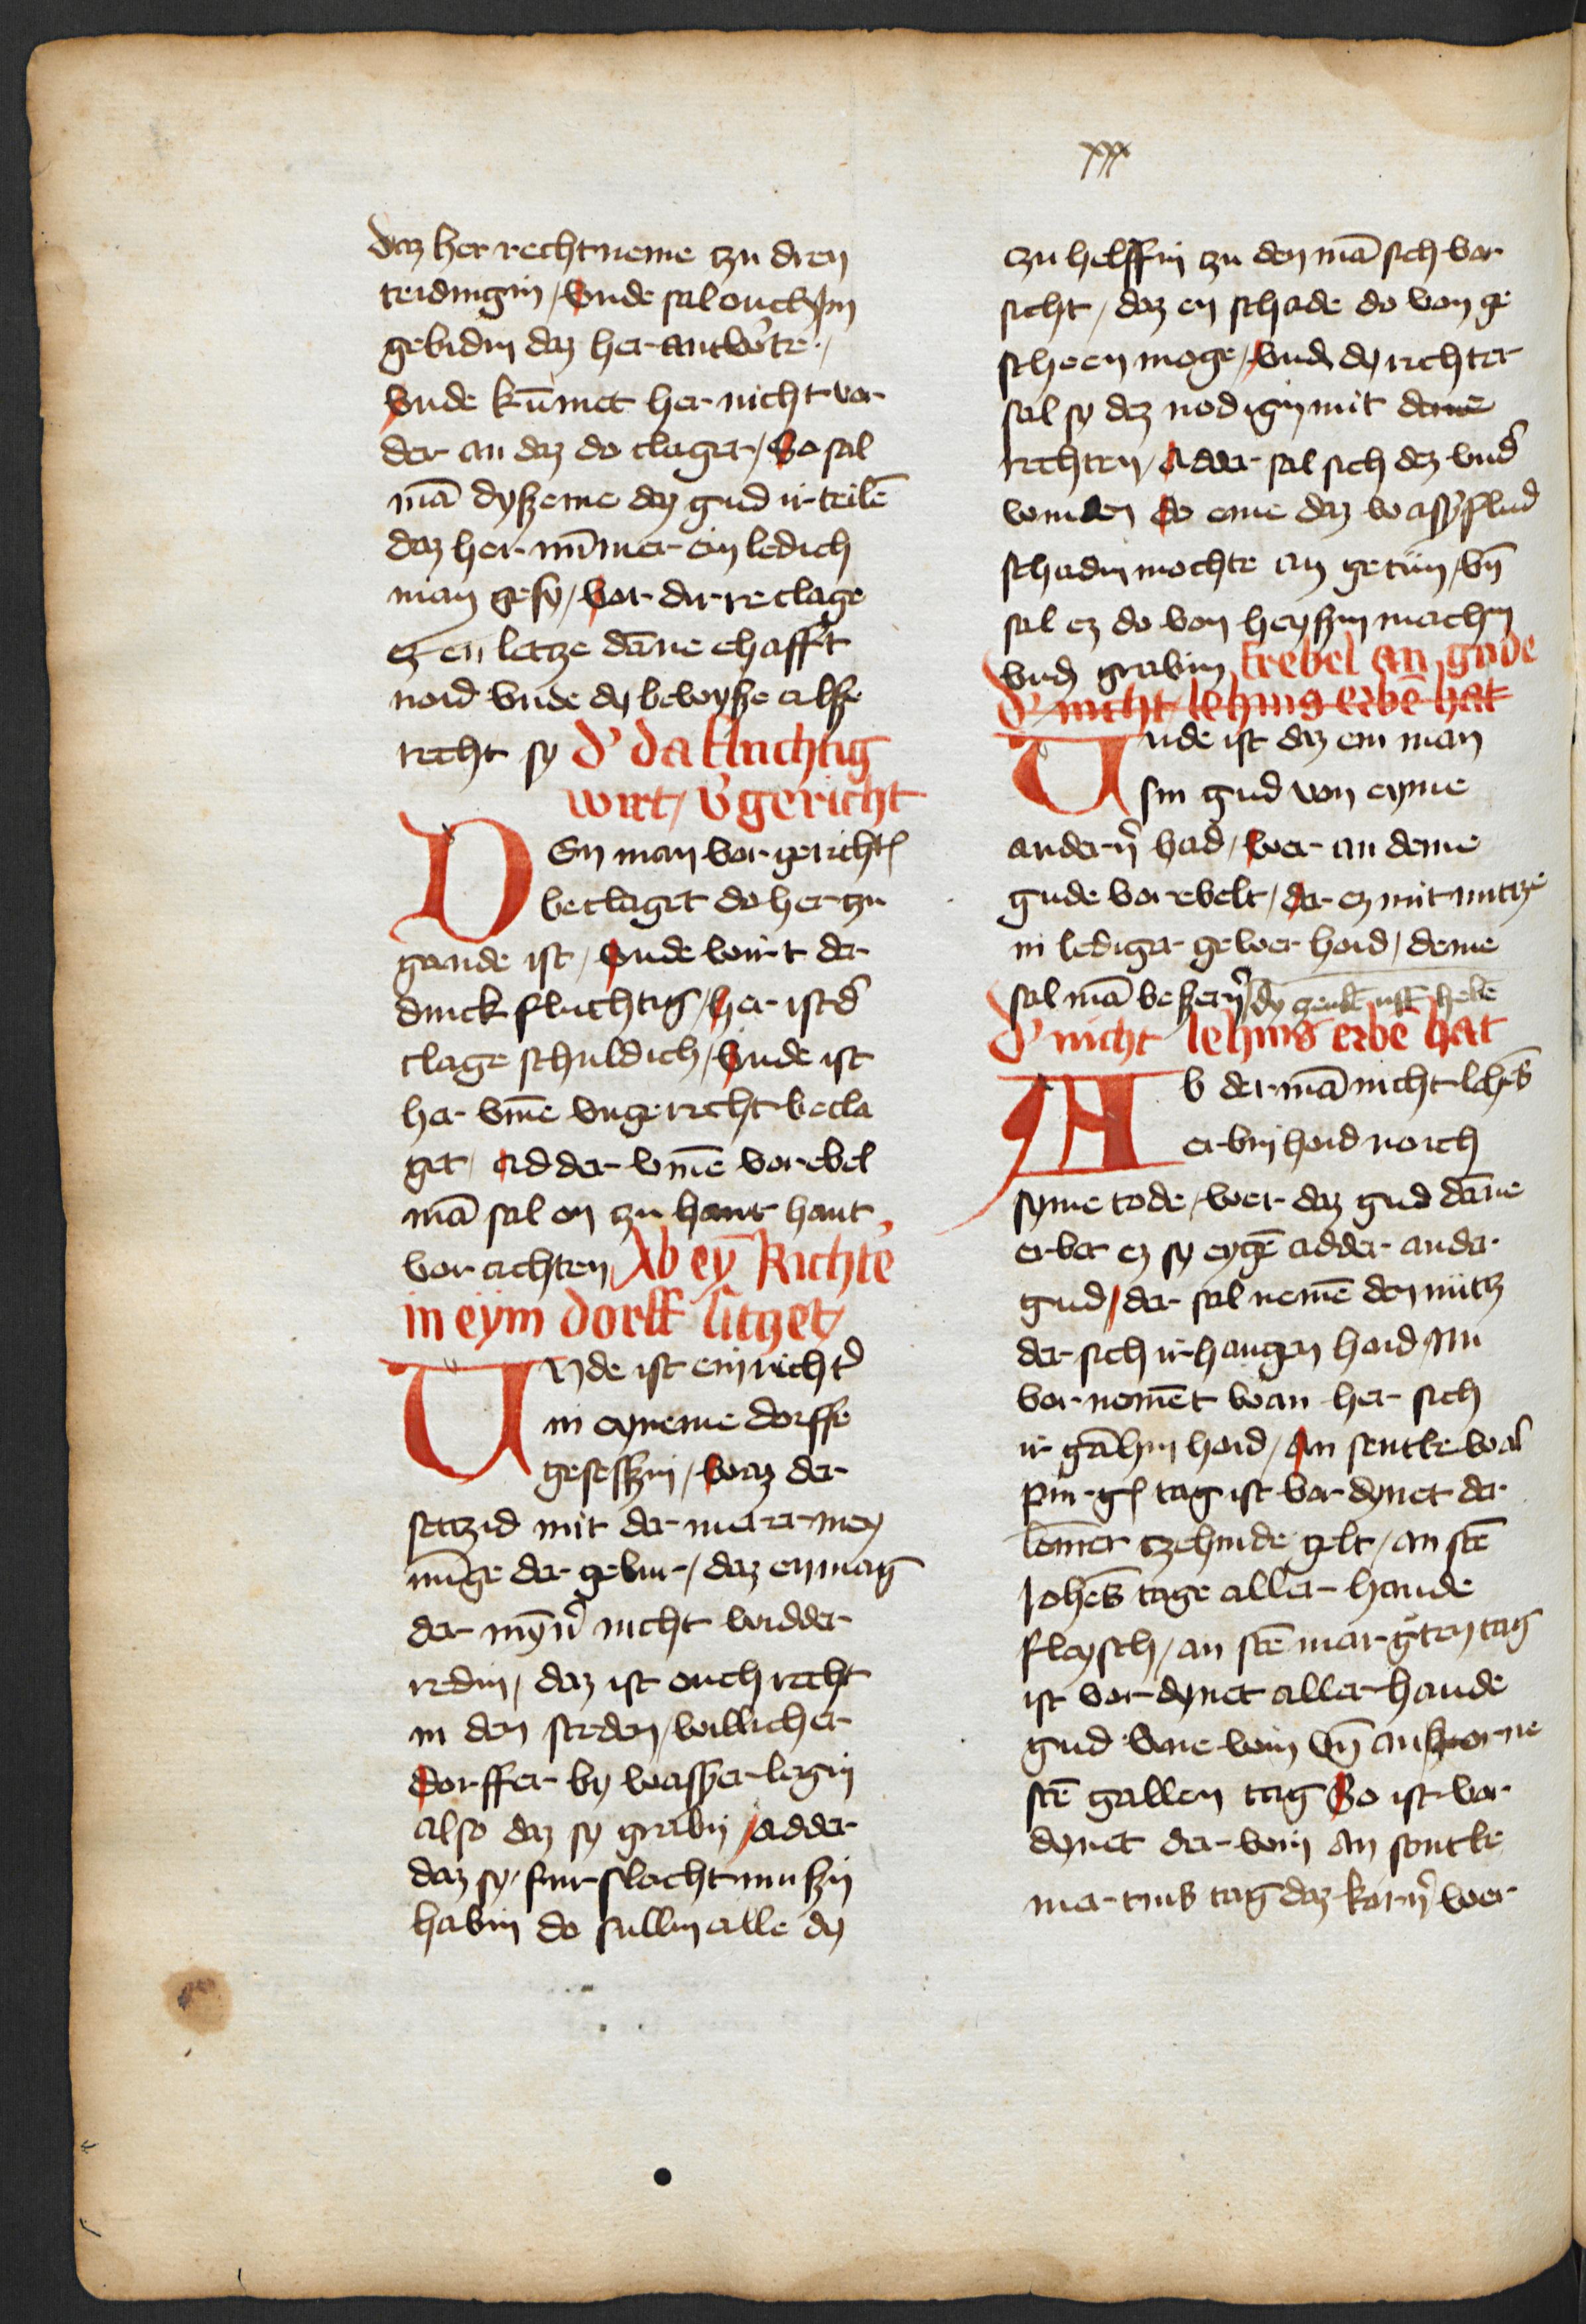 xxx
daz her recht neme tzu dren
teidingin / vnde sal ouch ym
gebidin daz her antw̾te /
vnde kūmet her nicht vor
der an daz do claget / So sal
mā dyszeme daz gud irteilē
daz her nūmer ein ledich
man gesy / vor dirre clage
ez en letze dāne ehafft
noid vnde dy bewysze alsze
recht sy d' da fluchtig
wirt / v' gericht
DEn man vor gericht
beclaget do her tzu
gande ist / vnde wirt der
dinck fluchtig / her ist d'
clage schuldich / vnde ist
her vm̄e vngerecht becla
get / adder vm̄e vorebel
mā sal en tzu hant hant
vor achten Ab ey̅ Richte'
in eym dorff sitzet /
Vnde ist ein richt'
in eyneme dorffe
gesesszin / waz der
setzid mit der merer mey
nūge der gebur / daz en mag
der myn̄' nicht widder
redin / daz ist ouch recht
in den steden / willicher
dorffer by waszer legin
also daz sy grabin / adder
daz sy fur slacht muszin
habin do sullin alle dy
tzu helffin tzu den mā sich vor
sicht / daz en schade do von ge
scheen moge / vnd dy richter
sal sy dez nodigin mit deme
rechten / adder sal sich dez vnd'
winden do eme daz wass'flud
schadin mochte an getun / vn̄
sal ez do von heyszin machin
vnd grabin frebel an gude
d' nicht lehins erbē hat
Vnde ist daz ein man
sin gud von eyme
andern' had / wer an deme
gude vorebelt / der ez mit nutze
in lediger gewer hoid / deme
sal mā beszern' dy
d' nicht lehins erbē hat
Ab der mā nicht lehēs
erbin hoid noch
syme tode / wer daz gud dāne
erbet ez sy eygē adder ander
gud / der sal nemē den nutz
der sich irhangen hoid Nu
vornemēt wan her sich
irgāhin hoid / An sentte wal
purg tag ist vor dynet der
lemer tzehinde gelt / an sētē
Johēs tage aller hande
fleysch / an sētē margreten tag
ist vor dynet aller hande
gud ane win vn̄ an korne
sētē gallen tag So ist vor
dynet der win An sentte
mertins tag daz korn' wer